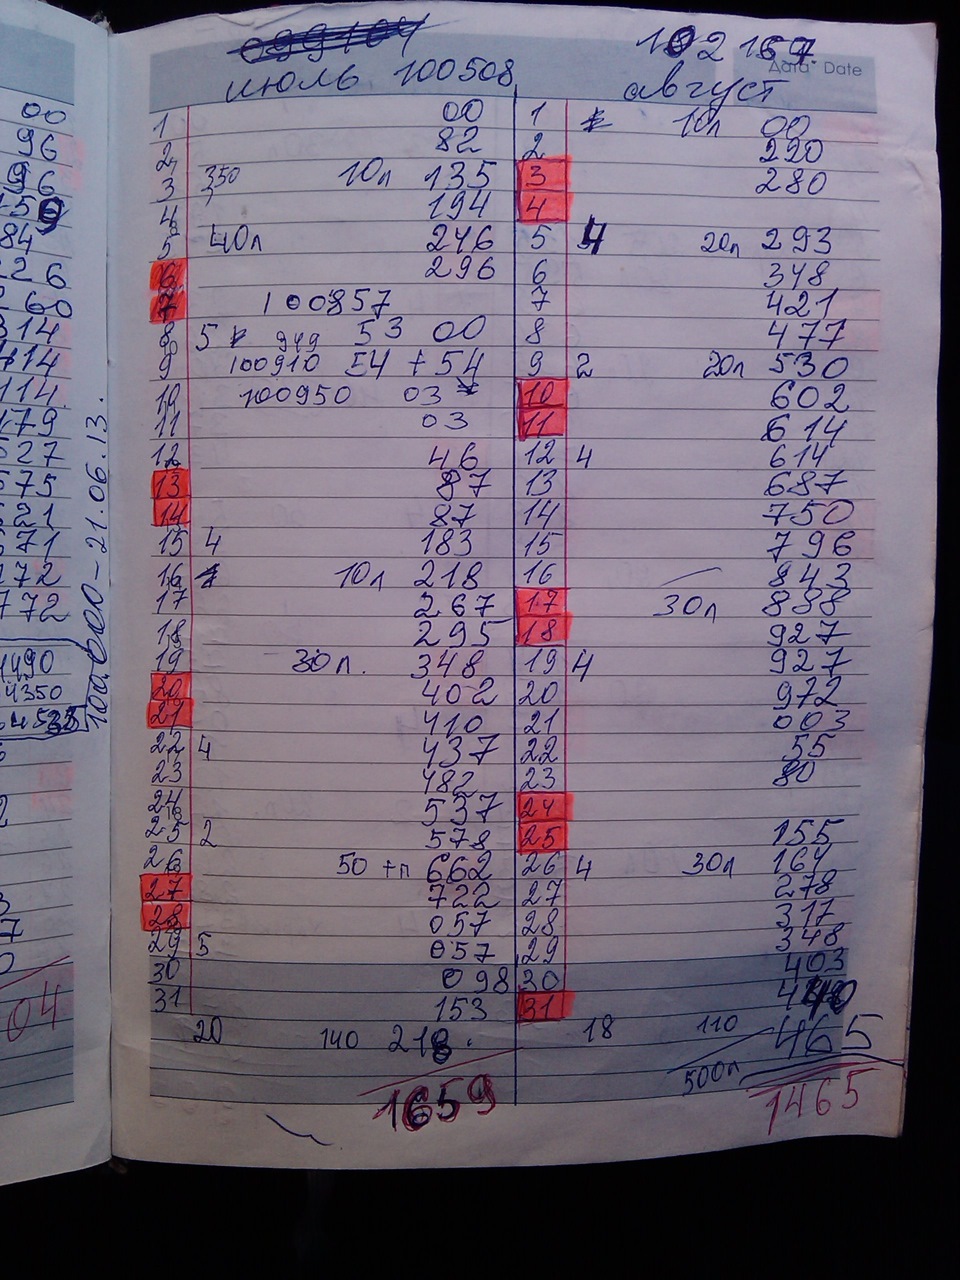 июль 100508
1 00
2 82
3 350 10л 135
4 194
5 40л 246
6 296
7 100857
8 5 949 53 00
9 100910 54 + 54
10 100950 03
11 03
12 46
13 87
14 87
15 4 183
16 10л 218
17 267
18 295
19 30л. 348
20 402
21 410
22 4 437
23 482
24 537
25 2 578
26 50 +п 662
27 722
28 057
29 5 057
30 098
31 153
20 140 218.
1659
102167.
Дата Date
август
1 10л 00
2 220
3 280
4
5 4 20л 293
6 348
7 421
8 477
9 2 20л 530
10 602
11 614
12 4 614
13 687
14 750
15 796
16 843
17 30л 898
18 927
19 4 927
20 972
21 003
22 55
23 80
24
25 155
26 4 30л 164
27 278
28 317
29 348
30 403
31
18 110 465
500л
1465
100,600-21.06.13.
00
96
96
84
226
260
314
414
114
179
527
575
521
571
772
1490
4350
04